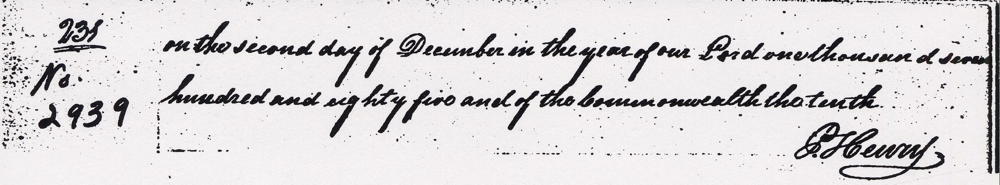 238
on the second day of December in the year of our Lord one thousand seven
No.
2939
hundred and eighty five and of the Commonwealth the tenth
P. Henry